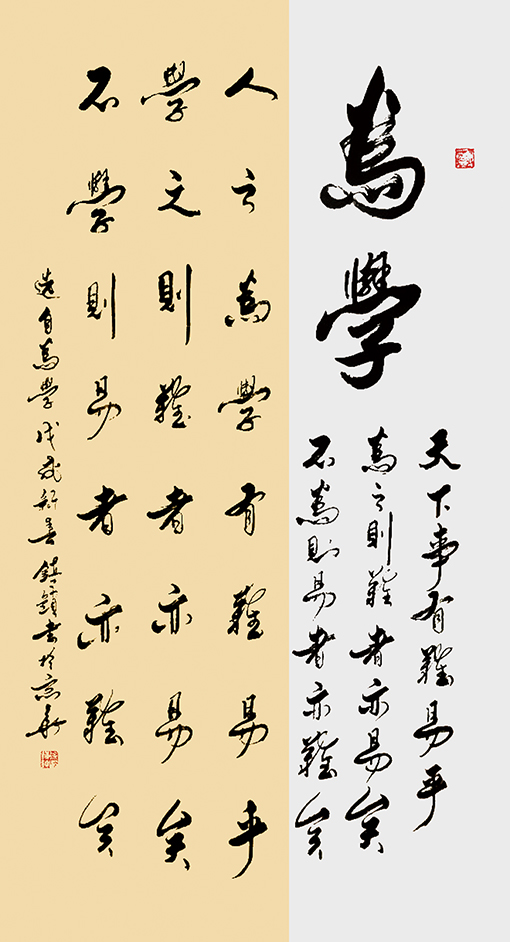 為學
天下事有難易乎
為之則難者亦易矣
不為則易者亦難矣
人之為學有難易乎
學之則難者亦易矣
不學則易者亦難矣
選自為學 戊戌新春 書於京華